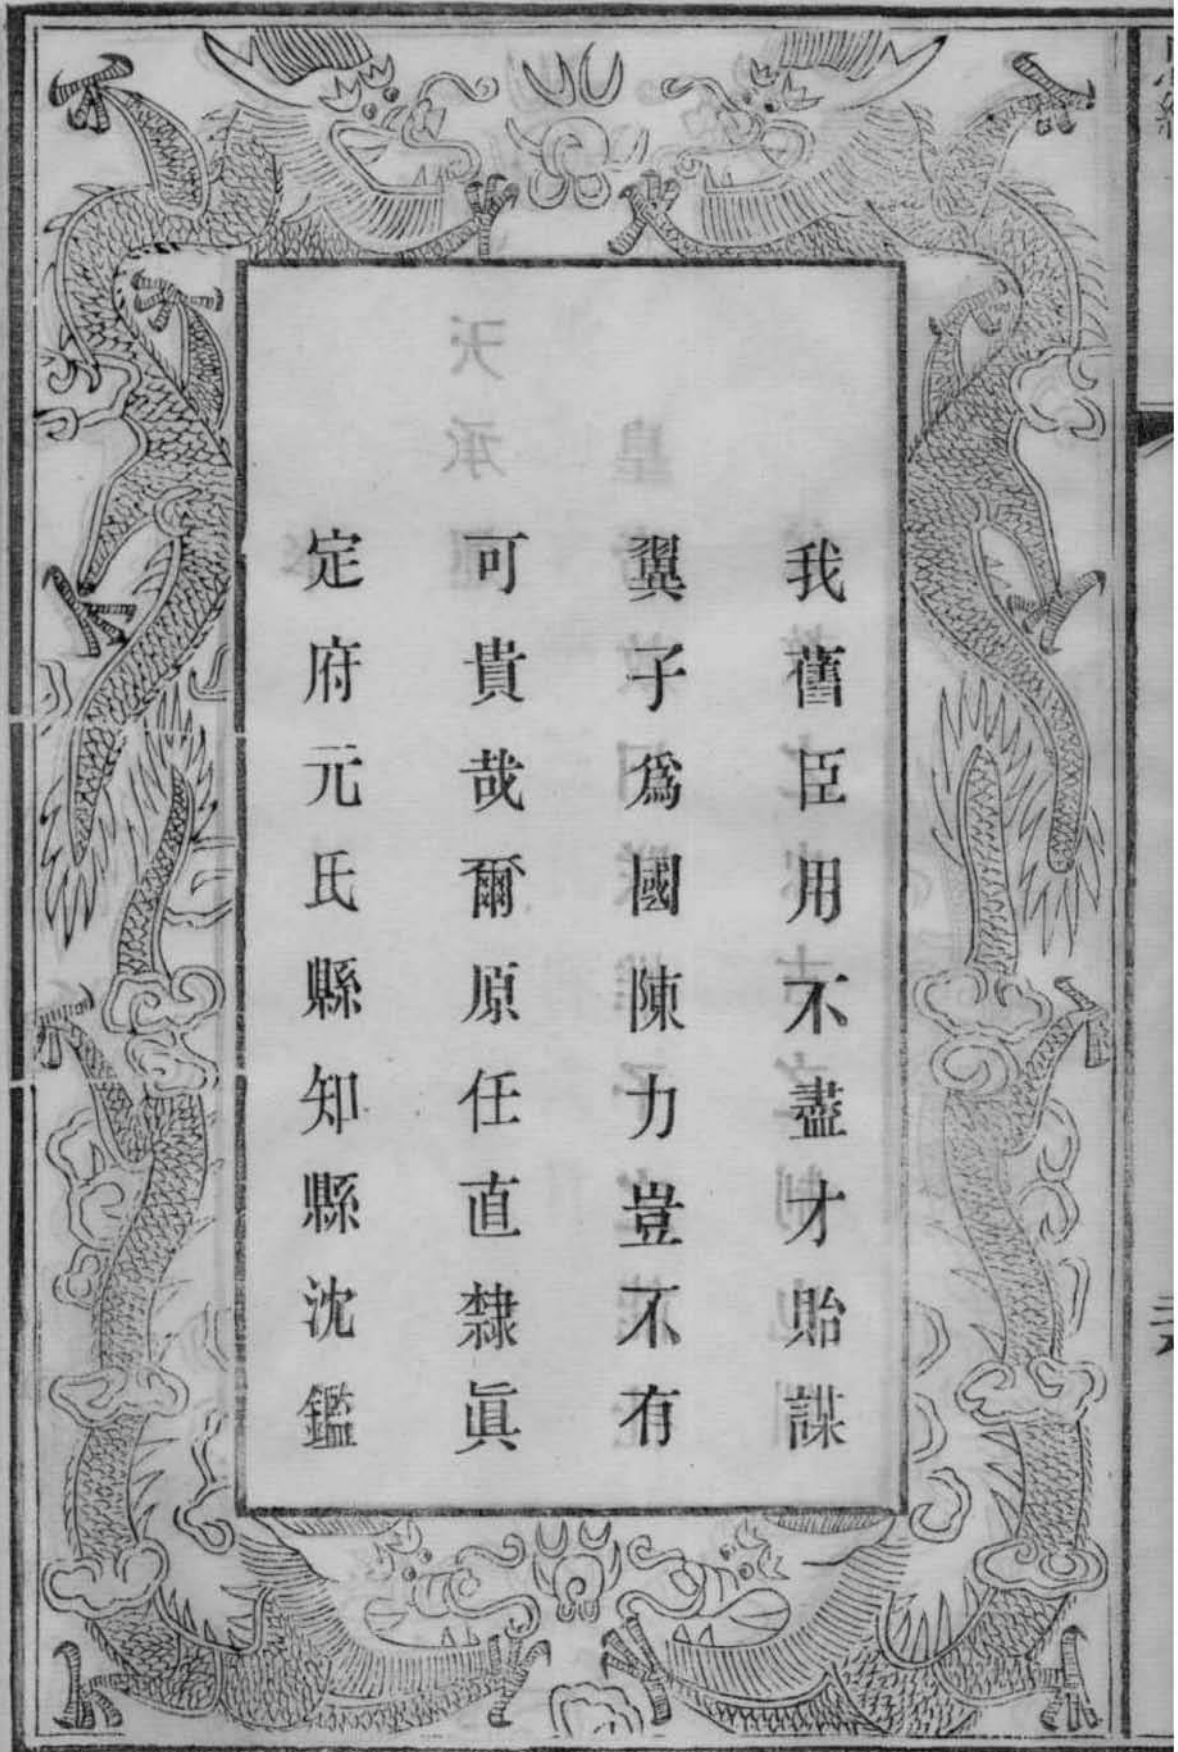 我舊臣用不盡才貽謀
翼子爲國陳力豈不有
可貴哉爾原任直隸眞
定府元氏縣知縣沈鑑